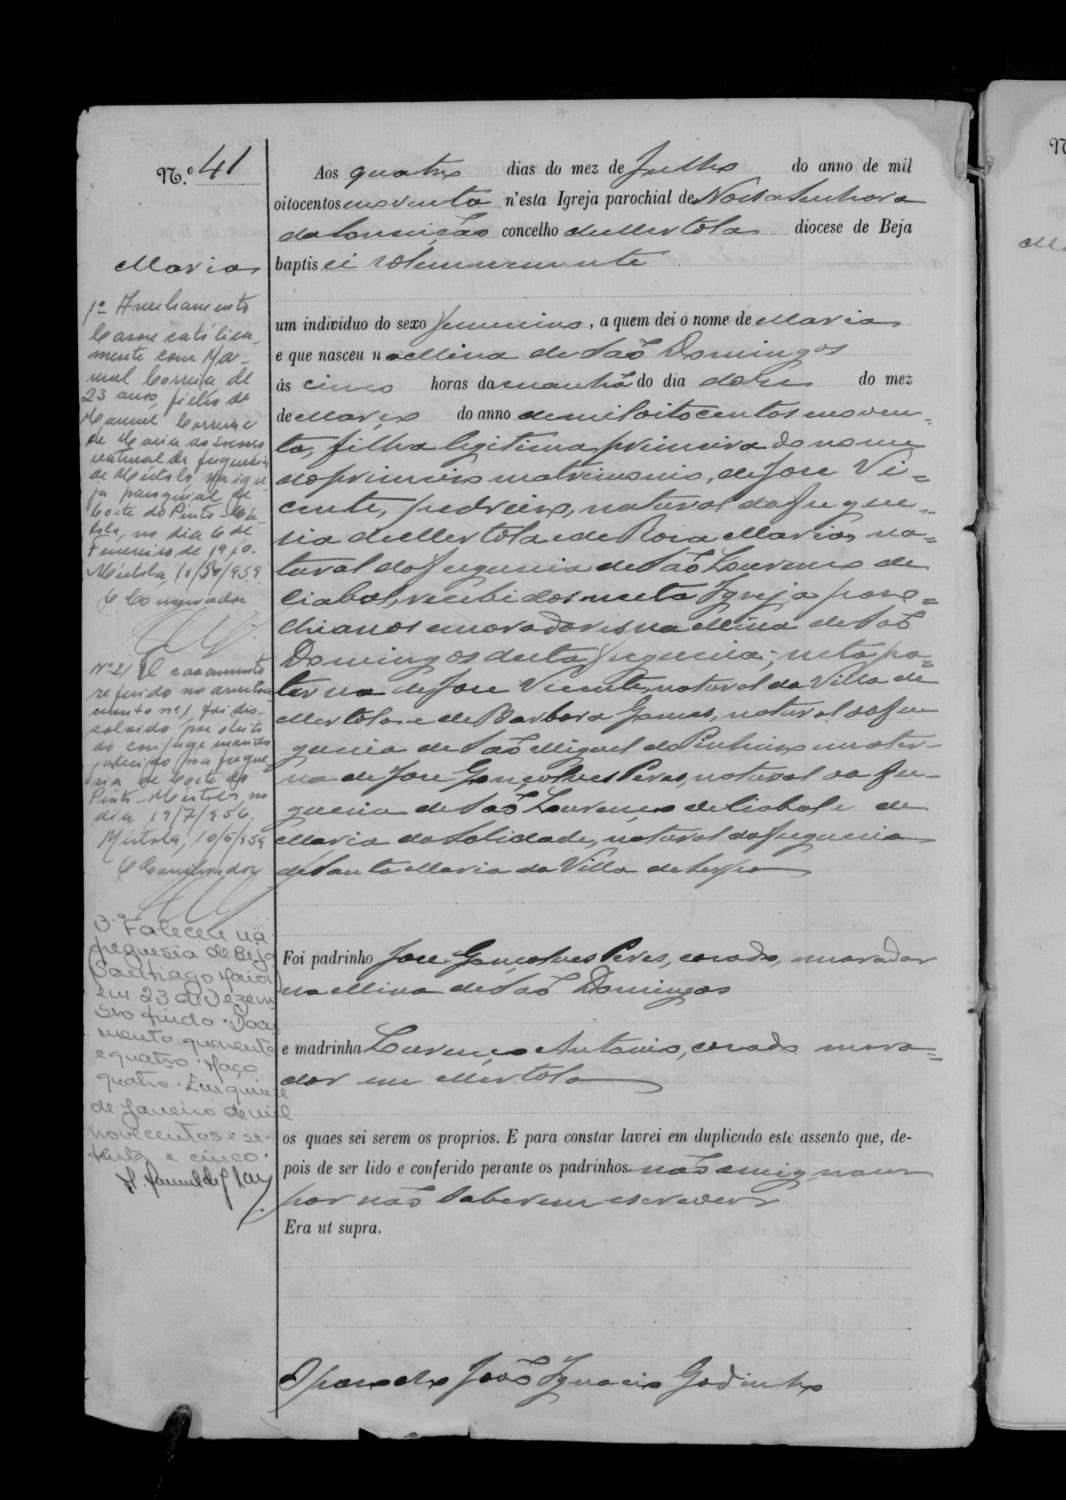 N.º 41
Maria
1º Averbamento
Casou catolica-
mente com Ma-
nuel Correia de
23 anos, filho de
Manuel Correia e
de Maria do Socorro
natural da freguesia
de Mértola, na igre-
ja paroquial de
Corte do Pinto - Mér-
tola, no dia 6 de
Fevereiro de 1910.
Mértola, 10/5º/959
O Conservador
Nº 2) O casamento
referido no averba-
mento nº 1 foi dis-
solvido por obito
do conjuge marido
falecido na fregue-
sia de Corte do
Pinto - Mértola no
dia 19/7/956.
Mértola, 10/5/959
O Conservador
3.º Faleceu na
freguesia de Beja
Santiago Maior
em 23 de Dezem
bro findo. Docu
mento quarenta
e quatro. Maço
quatro. Em quinze
de Janeiro de mil
novecentos e se-
tenta e cinco.
Aos quatro dias do mez de Julho do anno de mil
oitocentos noventa n'esta Igreja parochial de Nossa Senhora
da Conceição concelho de Mertola diocese de Beja
baptisei solemnemente
um individuo do sexo femenino, a quem dei o nome de Maria
e que nasceu na Mina de São Domingos
ás cinco horas da manhã do dia doze do mez
de Março do anno de mil oitocentos e noven-
ta, filha legitima, primeira do nome
do primeiro matrimonio, de Jose Vi=
cente, pedreiro, natural da fregue-
sia de Mertola e de Rosa Maria, na=
tural da freguesia de São Lourenço de
Liabol, recebidos nesta Igreja paro=
chianos e moradores na Mina de São
Domingos desta freguesia; neta pa=
terna de Jose Vicente, natural da Villa de
Mertola e de Barbara Gomes, natural da fre
guesia de São Miguel do Pinheiro e mater-
na de Jose Gonçalves Peres, natural da fre-
guesia de São Lourenço de Liabol, e de
Maria da Solidade, natural da freguesia
de Santa Maria da Villa de Serpa
Foi padrinho Jose Gonçalves Peres, casado, morador
na Mina de São Domingos
e madrinha Lourenço Antonio, casado mora=
dor em Mertola
os quaes sei serem os proprios. E para constar lavrei em duplicado este assento que, de-
pois de ser lido e conferido perante os padrinhos não assignam
por não saberem escrever
Era ut supra.
O parocho João Ignacio Godinho